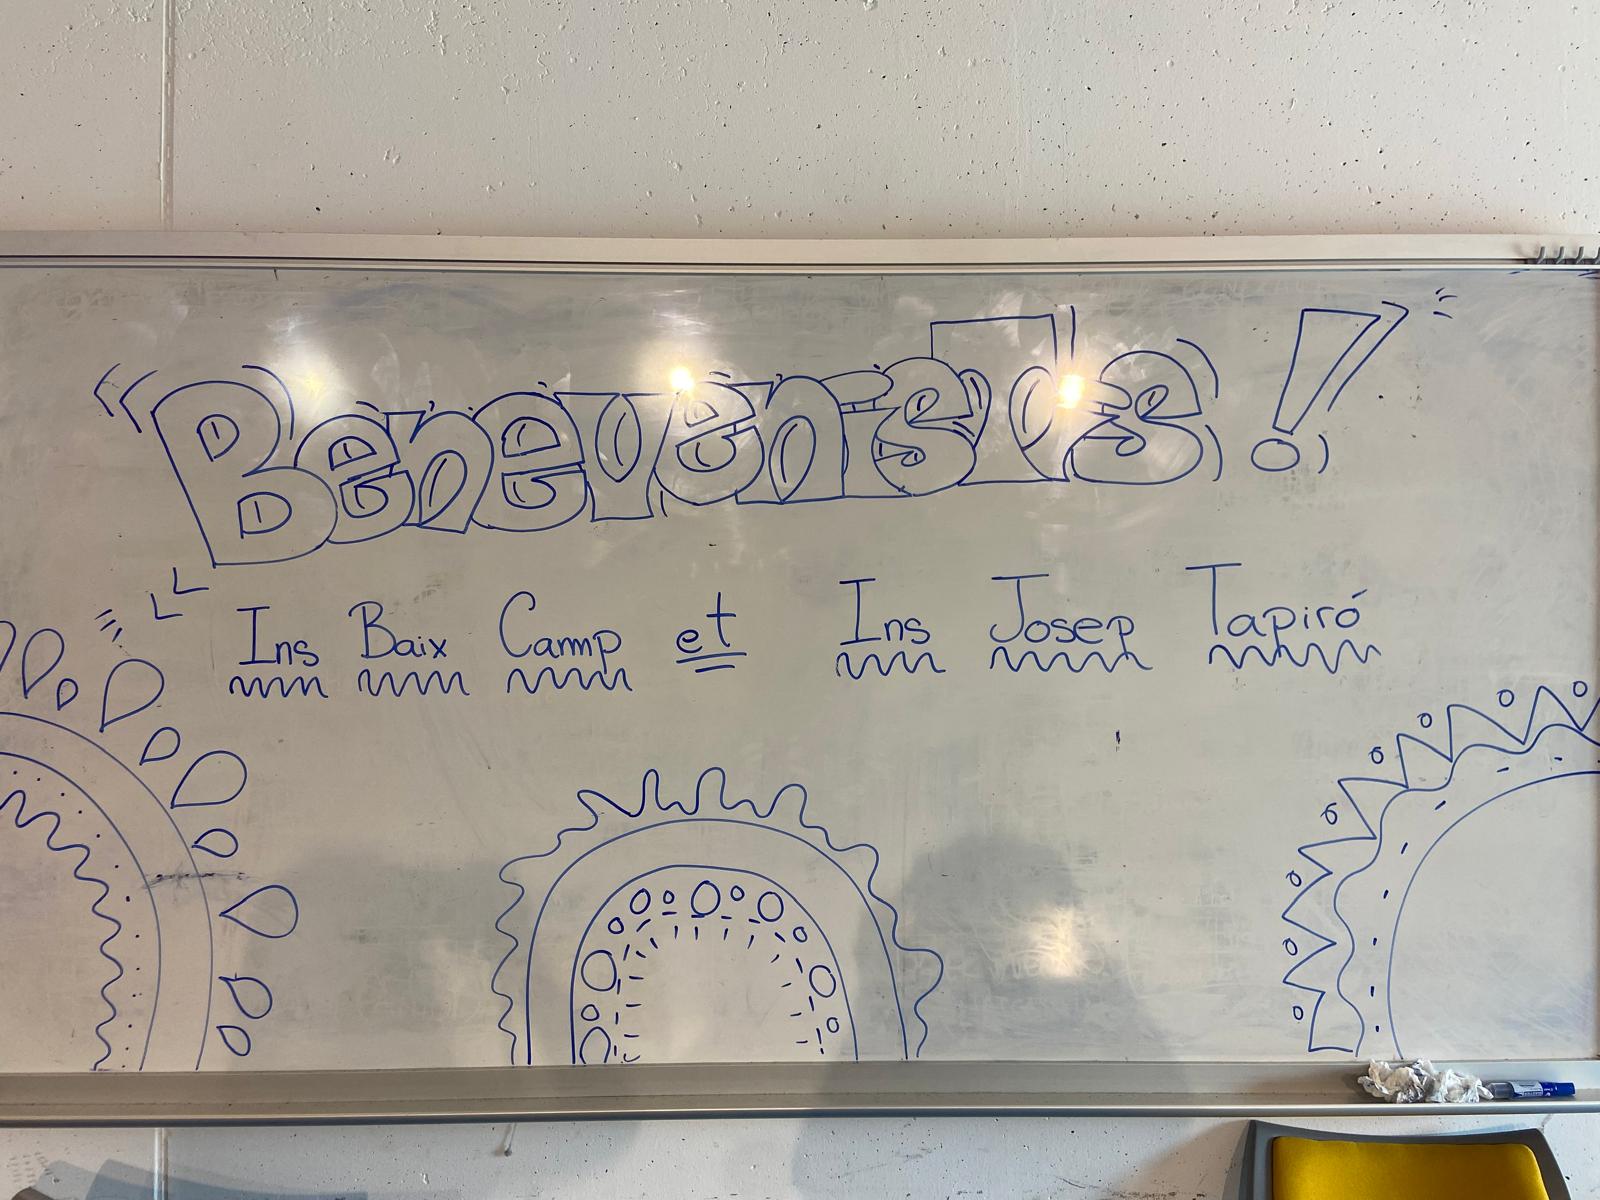 Ins Baix Camp et Ins Josep Tapiró